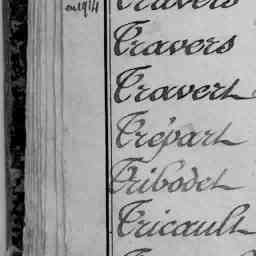 en 1914
Travers
Travers
Travert
Trépart
Tribodet
Tricault